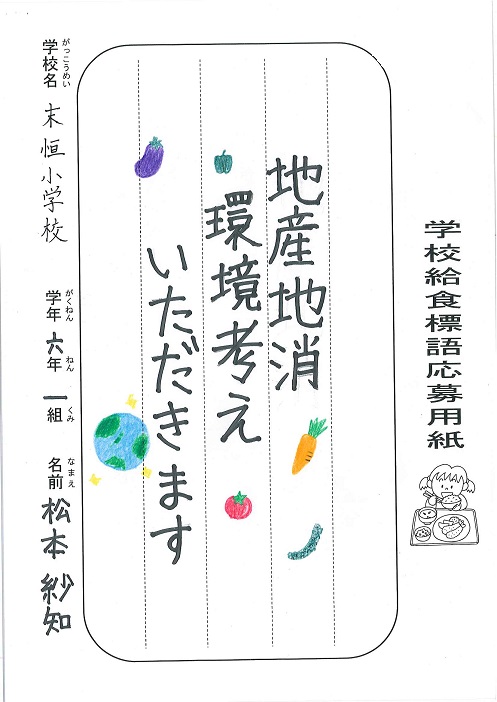 学校給食標語応募用紙
地産地消
環境考え
いただきます
がっこうめい
学校名 末恒小学校
がくねん ねん くみ
学年 六年 一組
なまえ
名前 松本 紗知